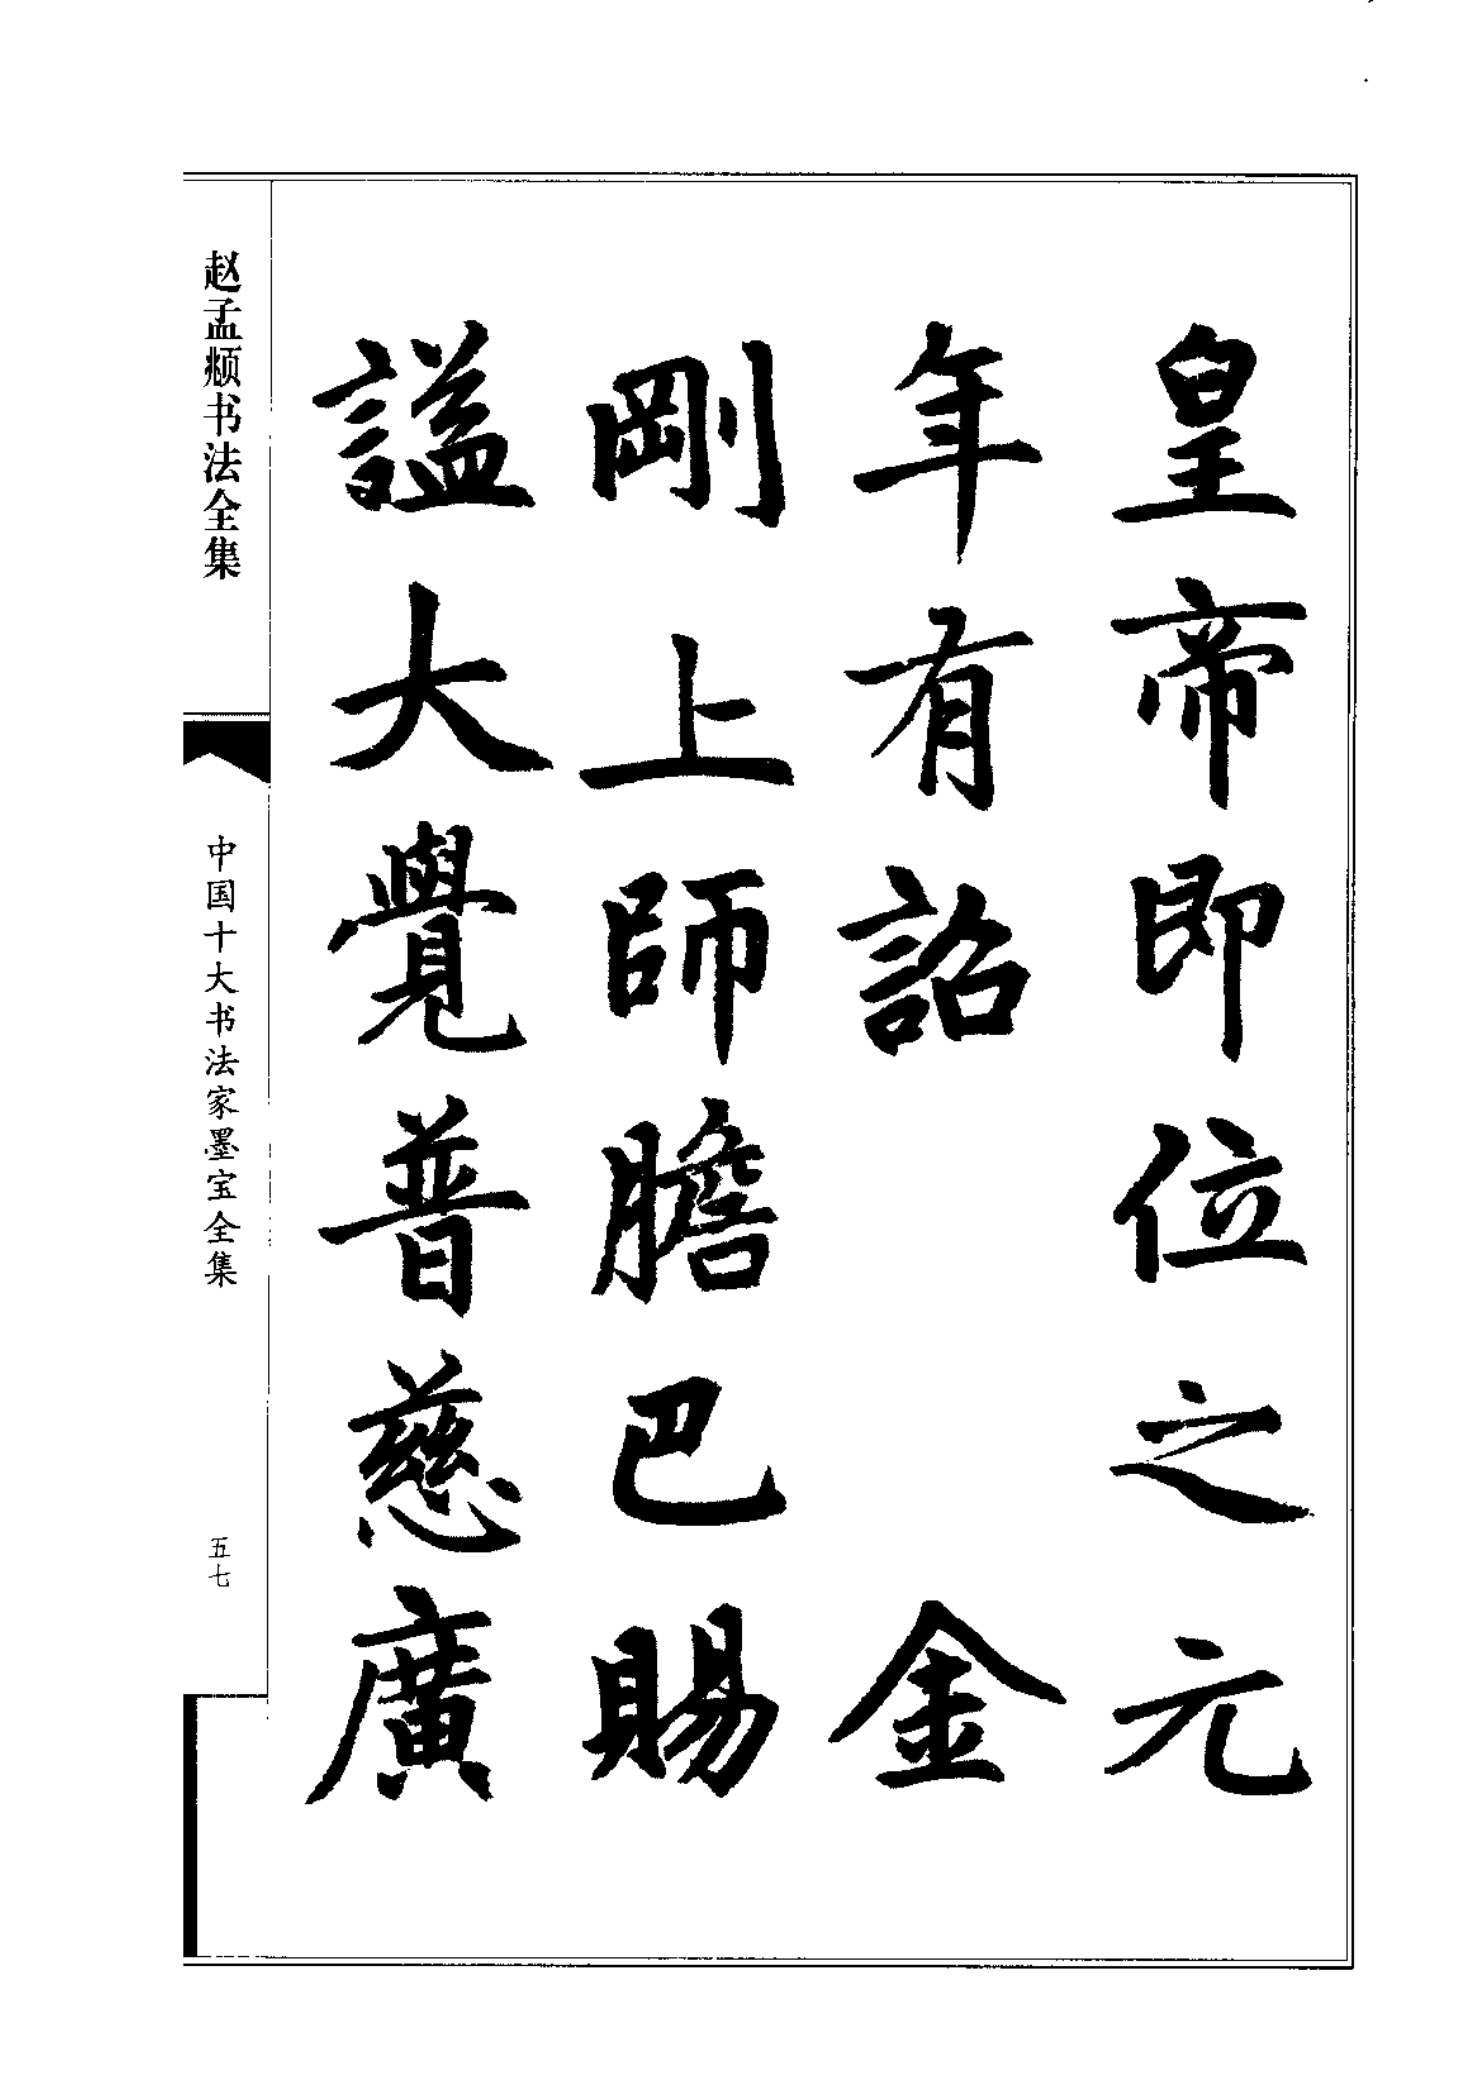 皇帝即位之元
年有詔金
剛上師膽巴賜
謚大覺普慈廣
赵孟頫书法全集
中国十大书法家墨宝全集
五七